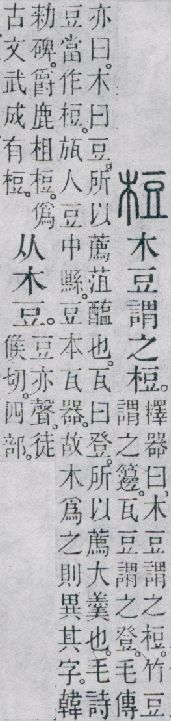 梪木豆謂之梪。
釋器曰。木豆謂之梪。竹豆
謂之籩。瓦豆謂之登。毛傳
亦曰。木曰豆。所以薦菹醢也。瓦曰登。所以薦大羹也。毛詩
豆當作梪。瓬人豆中縣。豆本瓦器。故木爲之則異其字。韓
勑碑。爵鹿柤梪。僞
古文武成有梪。
从木豆。
豆亦聲。徒
候切。四部。